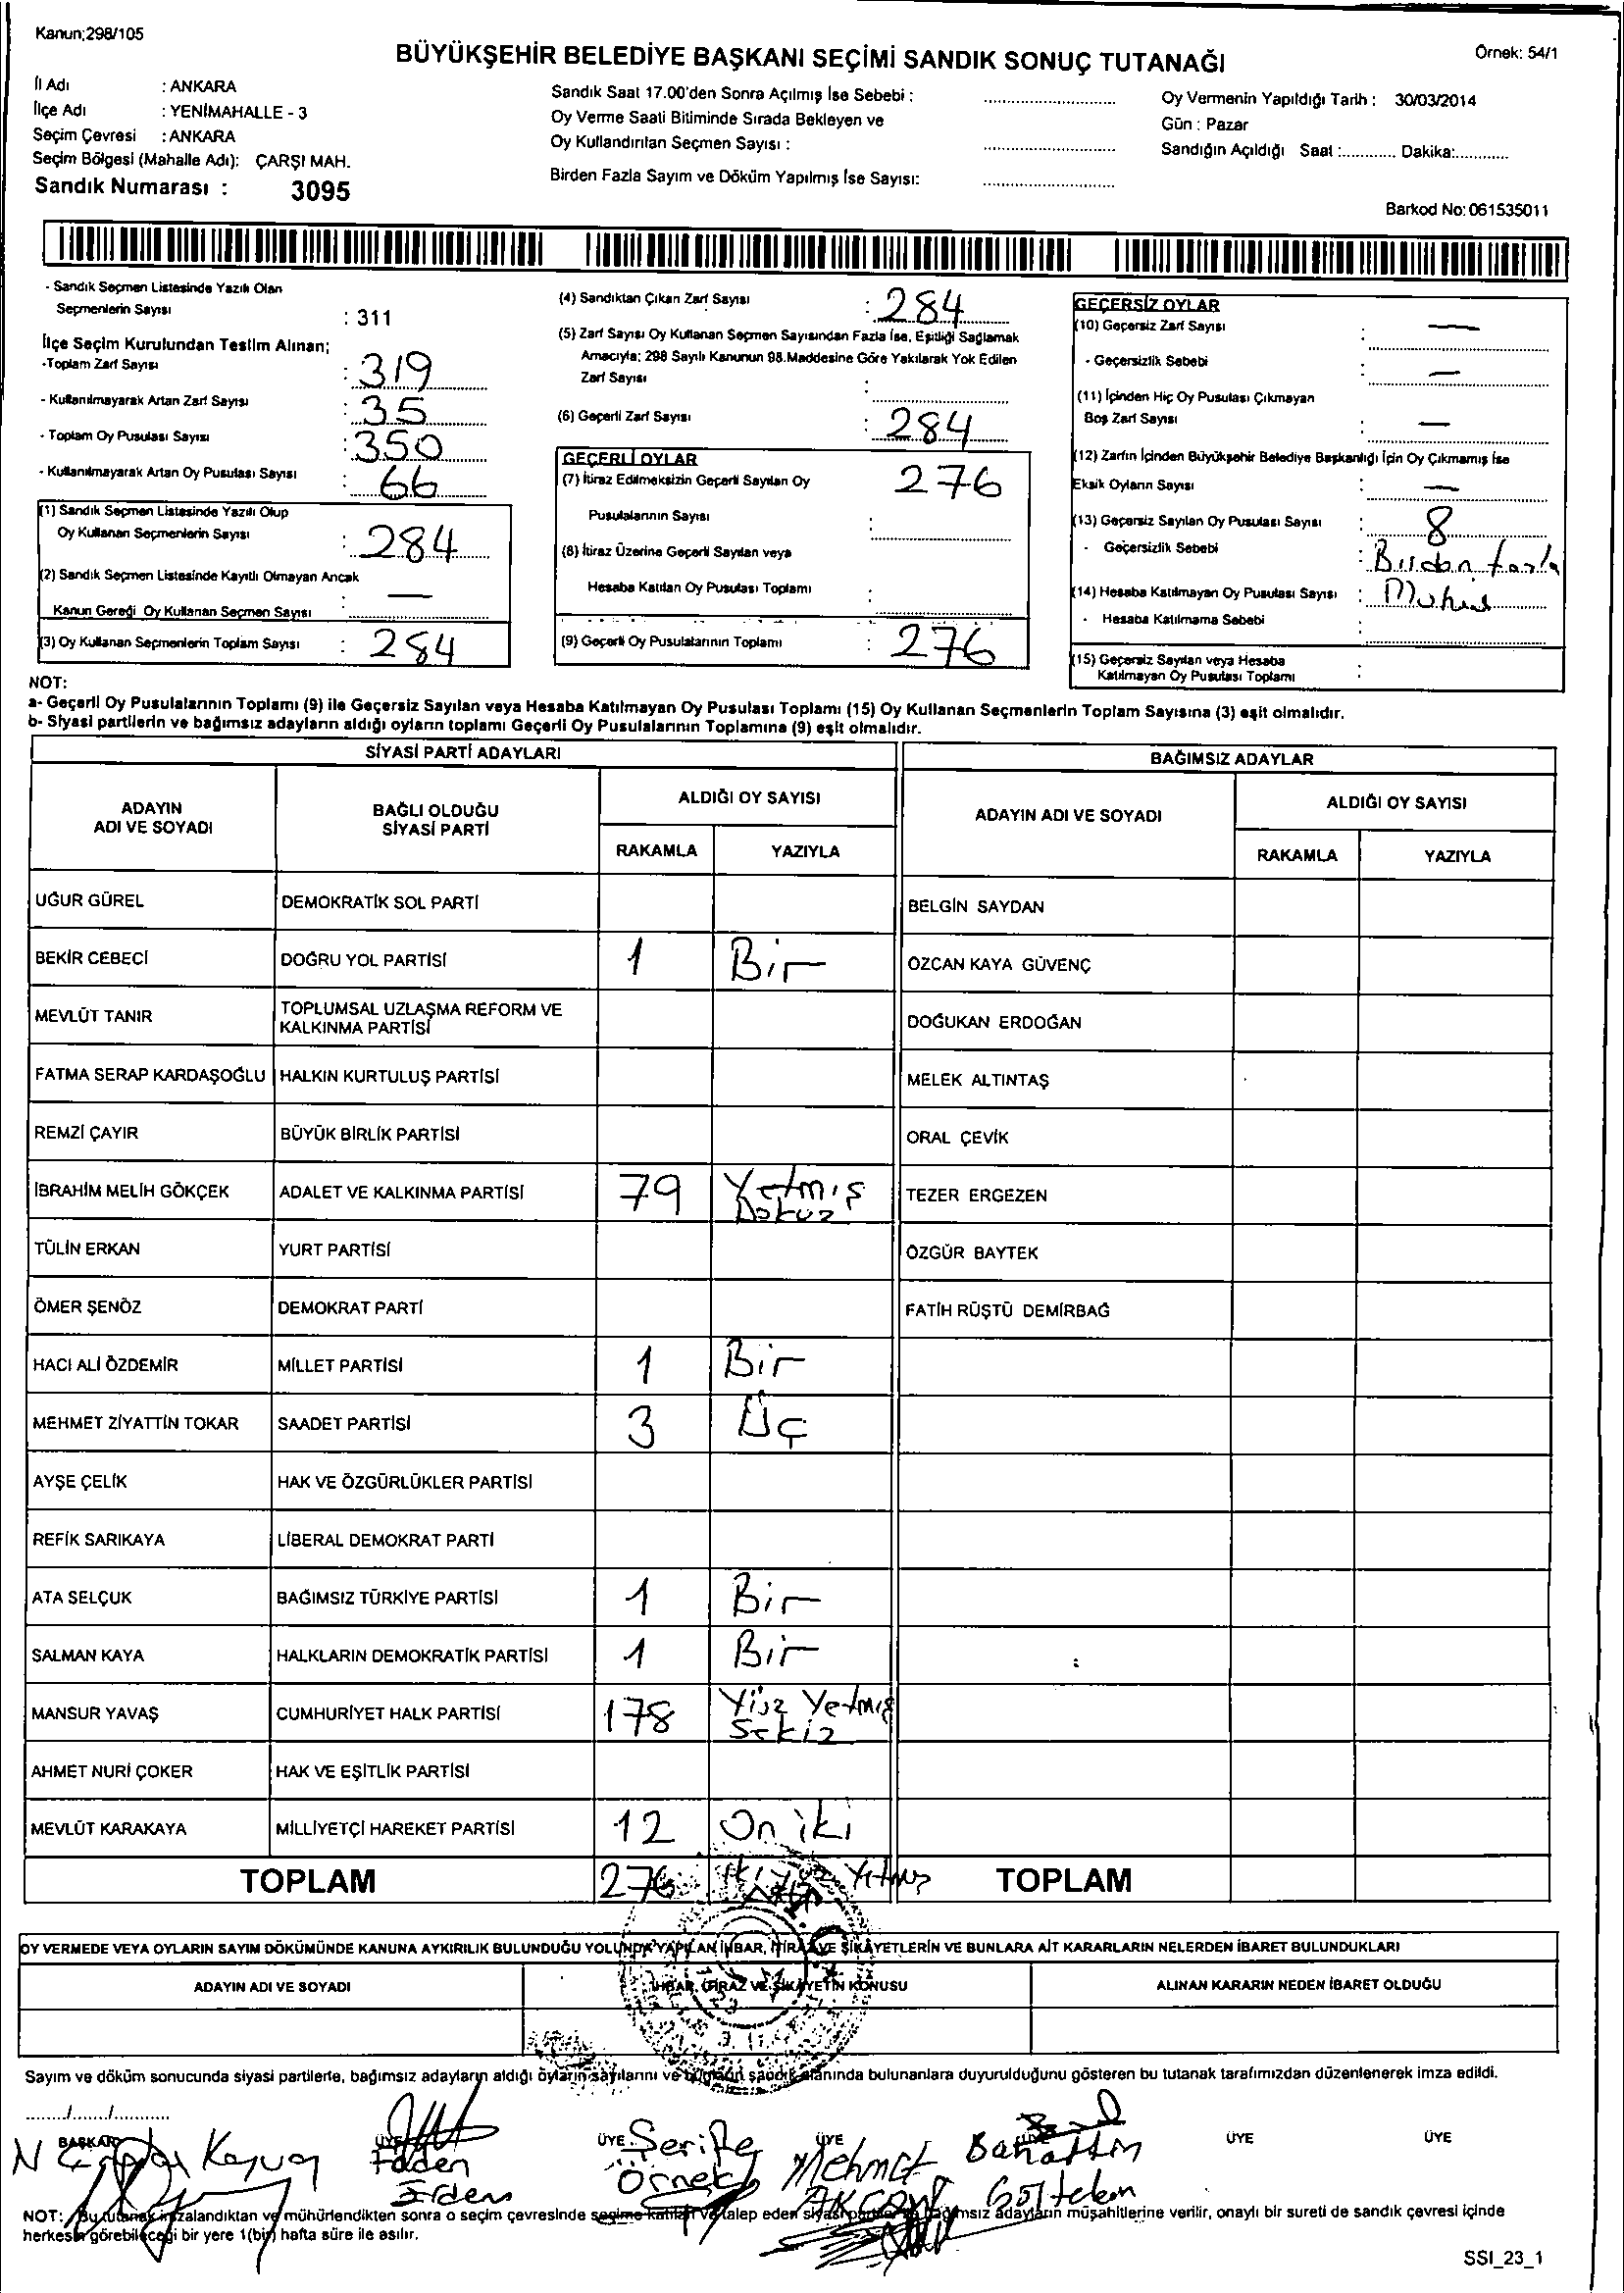 Kanun;298/105
BÜYÜKŞEHİR BELEDİYE BAŞKANI SEÇİMİ SANDIK SONUÇ TUTANAĞI
Örnek: 54/1
İl Adı : ANKARA
İlçe Adı : YENİMAHALLE - 3
Seçim Çevresi : ANKARA
Seçim Bölgesi (Mahalle Adı): ÇARŞI MAH.
Sandık Numarası : 3095
Sandık Saat 17.00'den Sonra Açılmış İse Sebebi :
Oy Verme Saati Bitiminde Sırada Bekleyen ve
Oy Kullandırılan Seçmen Sayısı :
Birden Fazla Sayım ve Döküm Yapılmış İse Sayısı:
Oy Vermenin Yapıldığı Tarih : 30/03/2014
Gün : Pazar
Sandığın Açıldığı Saat :............ Dakika:............
Barkod No: 061535011
- Sandık Seçmen Listesinde Yazılı Olan
Seçmenlerin Sayısı : 311
İlçe Seçim Kurulundan Teslim Alınan;
-Toplam Zarf Sayısı : 319
- Kullanılmayarak Artan Zarf Sayısı : 35
- Toplam Oy Pusulası Sayısı : 350
- Kullanılmayarak Artan Oy Pusulası Sayısı : 66
(1) Sandık Seçmen Listesinde Yazılı Olup
Oy Kullanan Seçmenlerin Sayısı : 284
(2) Sandık Seçmen Listesinde Kayıtlı Olmayan Ancak
Kanun Gereği Oy Kullanan Seçmen Sayısı : —
(3) Oy Kullanan Seçmenlerin Toplam Sayısı : 284
(4) Sandıktan Çıkan Zarf Sayısı : 284
(5) Zarf Sayısı Oy Kullanan Seçmen Sayısından Fazla İse, Eşitliği Sağlamak
Amacıyla; 298 Sayılı Kanunun 98.Maddesine Göre Yakılarak Yok Edilen
Zarf Sayısı :
(6) Geçerli Zarf Sayısı : 284
GEÇERLİ OYLAR
(7) İtiraz Edilmeksizin Geçerli Sayılan Oy 276
Pusulalarının Sayısı :
(8) İtiraz Üzerine Geçerli Sayılan veya
Hesaba Katılan Oy Pusulası Toplamı :
(9) Geçerli Oy Pusulalarının Toplamı : 276
GEÇERSİZ OYLAR
(10) Geçersiz Zarf Sayısı : —
- Geçersizlik Sebebi : —
(11) İçinden Hiç Oy Pusulası Çıkmayan
Boş Zarf Sayısı : —
(12) Zarfın İçinden Büyükşehir Belediye Başkanlığı İçin Oy Çıkmamış İse
Eksik Oyların Sayısı : —
(13) Geçersiz Sayılan Oy Pusulası Sayısı : 8
- Geçersizlik Sebebi : Birden fazla
(14) Hesaba Katılmayan Oy Pusulası Sayısı : Mühür
- Hesaba Katılmama Sebebi :
(15) Geçersiz Sayılan veya Hesaba
Katılmayan Oy Pusulası Toplamı :
NOT:
a- Geçerli Oy Pusulalarının Toplamı (9) ile Geçersiz Sayılan veya Hesaba Katılmayan Oy Pusulası Toplamı (15) Oy Kullanan Seçmenlerin Toplam Sayısına (3) eşit olmalıdır.
b- Siyasi partilerin ve bağımsız adayların aldığı oyların toplamı Geçerli Oy Pusulalarının Toplamına (9) eşit olmalıdır.
SİYASİ PARTİ ADAYLARI
BAĞIMSIZ ADAYLAR
ADAYIN ADI VE SOYADI
BAĞLI OLDUĞU SİYASİ PARTİ
ALDIĞI OY SAYISI
RAKAMLA YAZIYLA
ADAYIN ADI VE SOYADI
ALDIĞI OY SAYISI
RAKAMLA YAZIYLA
UĞUR GÜREL DEMOKRATİK SOL PARTİ BELGİN SAYDAN
BEKİR CEBECİ DOĞRU YOL PARTİSİ 1 Bir ÖZCAN KAYA GÜVENÇ
MEVLÜT TANIR TOPLUMSAL UZLAŞMA REFORM VE KALKINMA PARTİSİ DOĞUKAN ERDOĞAN
FATMA SERAP KARDAŞOĞLU HALKIN KURTULUŞ PARTİSİ MELEK ALTINTAŞ
REMZİ ÇAYIR BÜYÜK BİRLİK PARTİSİ ORAL ÇEVİK
İBRAHİM MELİH GÖKÇEK ADALET VE KALKINMA PARTİSİ 79 Yetmiş Dokuz TEZER ERGEZEN
TÜLİN ERKAN YURT PARTİSİ ÖZGÜR BAYTEK
ÖMER ŞENÖZ DEMOKRAT PARTİ FATİH RÜŞTÜ DEMİRBAĞ
HACI ALİ ÖZDEMİR MİLLET PARTİSİ 1 Bir
MEHMET ZİYATTİN TOKAR SAADET PARTİSİ 3 Üç
AYŞE ÇELİK HAK VE ÖZGÜRLÜKLER PARTİSİ
REFİK SARIKAYA LİBERAL DEMOKRAT PARTİ
ATA SELÇUK BAĞIMSIZ TÜRKİYE PARTİSİ 1 Bir
SALMAN KAYA HALKLARIN DEMOKRATİK PARTİSİ 1 Bir
MANSUR YAVAŞ CUMHURİYET HALK PARTİSİ 178 Yüz Yetmiş Sekiz
AHMET NURİ ÇOKER HAK VE EŞİTLİK PARTİSİ
MEVLÜT KARAKAYA MİLLİYETÇİ HAREKET PARTİSİ 12 On iki
TOPLAM 276 iki yüz Yetmiş Altı TOPLAM
OY VERMEDE VEYA OYLARIN SAYIM DÖKÜMÜNDE KANUNA AYKIRILIK BULUNDUĞU YOLUNDA YAPILAN İHBAR, İTİRAZ VE ŞİKAYETLERİN VE BUNLARA AİT KARARLARIN NELERDEN İBARET BULUNDUKLARI
ADAYIN ADI VE SOYADI İHBAR, İTİRAZ VE ŞİKAYETİN KONUSU ALINAN KARARIN NEDEN İBARET OLDUĞU
Sayım ve döküm sonucunda siyasi partilerle, bağımsız adayların aldığı oyların sayılarını ve bugün sandık alanında bulunanlara duyurulduğunu gösteren bu tutanak tarafımızdan düzenlenerek imza edildi.
......../......../............
BAŞKAN ÜYE ÜYE ÜYE ÜYE ÜYE ÜYE
N
Şerife Örnek
Mehmet
Bahattin Göltekin
Erdem
NOT: Bu tutanak imzalandıktan ve mühürlendikten sonra o seçim çevresinde seçime katılan ve talep eden siyasi partiler ve bağımsız adayların müşahitlerine verilir, onaylı bir sureti de sandık çevresi içinde
herkesin görebileceği bir yere 1(bir) hafta süre ile asılır.
SSI_23_1